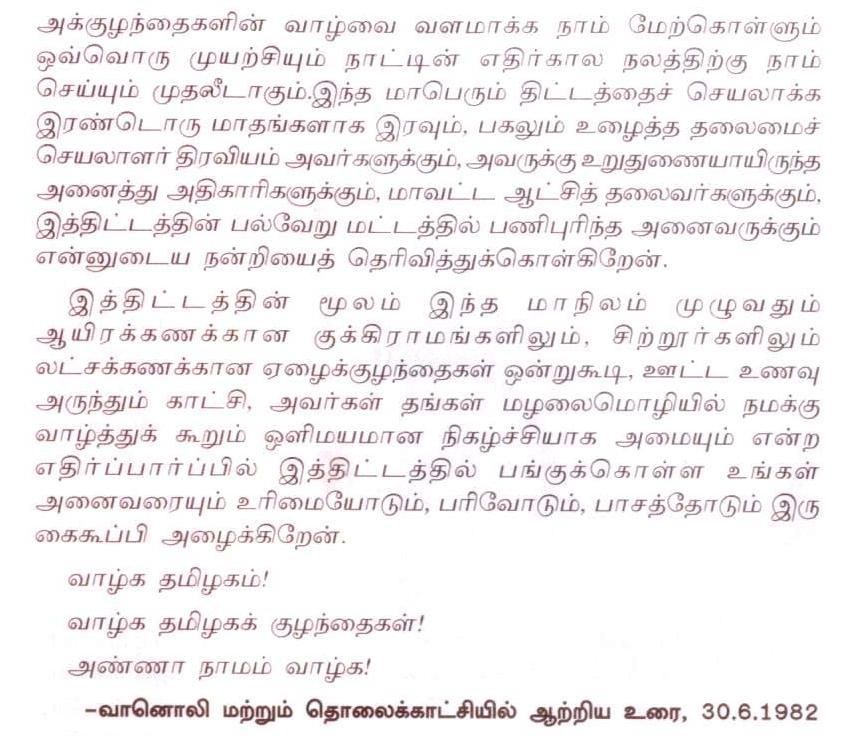 அக்குழந்தைகளின் வாழ்வை வளமாக்க நாம் மேற்கொள்ளும்
ஒவ்வொரு முயற்சியும் நாட்டின் எதிர்கால நலத்திற்கு நாம்
செய்யும் முதலீடாகும்.இந்த மாபெரும் திட்டத்தைச் செயலாக்க
இரண்டொரு மாதங்களாக இரவும், பகலும் உழைத்த தலைமைச்
செயலாளர் திரவியம் அவர்களுக்கும், அவருக்கு உறுதுணையாயிருந்த
அனைத்து அதிகாரிகளுக்கும், மாவட்ட ஆட்சித் தலைவர்களுக்கும்,
இத்திட்டத்தின் பல்வேறு மட்டத்தில் பணிபுரிந்த அனைவருக்கும்
என்னுடைய நன்றியைத் தெரிவித்துக்கொள்கிறேன்.
இத்திட்டத்தின் மூலம் இந்த மாநிலம் முழுவதும்
ஆயிரக்கணக்கான குக்கிராமங்களிலும், சிற்றூர்களிலும்
லட்சக்கணக்கான ஏழைக்குழந்தைகள் ஒன்றுகூடி, ஊட்ட உணவு
அருந்தும் காட்சி, அவர்கள் தங்கள் மழலைமொழியில் நமக்கு
வாழ்த்துக் கூறும் ஒளிமயமான நிகழ்ச்சியாக அமையும் என்ற
எதிர்ப்பார்ப்பில் இத்திட்டத்தில் பங்குக்கொள்ள உங்கள்
அனைவரையும் உரிமையோடும், பரிவோடும், பாசத்தோடும் இரு
கைகூப்பி அழைக்கிறேன்.
வாழ்க தமிழகம்!
வாழ்க தமிழகக் குழந்தைகள்!
அண்ணா நாமம் வாழ்க!
–வானொலி மற்றும் தொலைக்காட்சியில் ஆற்றிய உரை, 30.6.1982